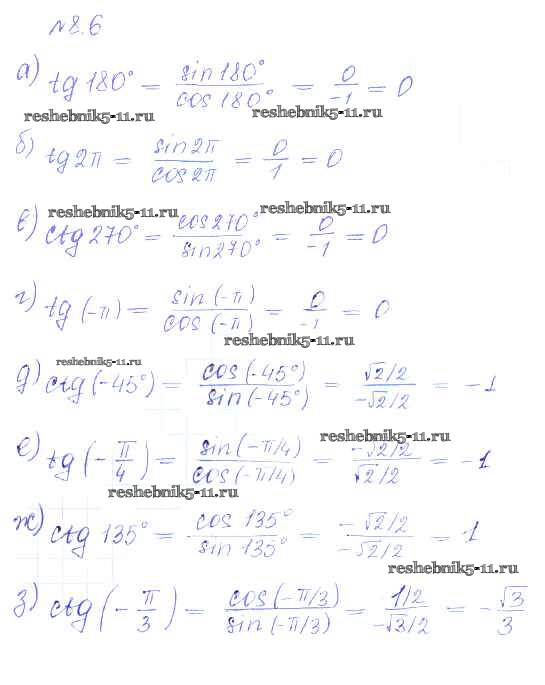 №8.6
а) tg 180° = sin 180° / cos 180° = 0 / -1 = 0
reshebnik5-11.ru reshebnik5-11.ru
б) tg 2π = sin 2π / cos 2π = 0 / 1 = 0
reshebnik5-11.ru reshebnik5-11.ru
в) ctg 270° = cos 270° / sin 270° = 0 / -1 = 0
г) tg (-π) = sin (-π) / cos (-π) = 0 / -1 = 0
reshebnik5-11.ru
reshebnik5-11.ru
д) ctg (-45°) = cos (-45°) / sin (-45°) = √2/2 / -√2/2 = -1
reshebnik5-11.ru
е) tg (-π/4) = sin (-π/4) / cos (-π/4) = -√2/2 / √2/2 = -1
reshebnik5-11.ru
ж) ctg 135° = cos 135° / sin 135° = -√2/2 / -√2/2 = 1
reshebnik5-11.ru
з) ctg (-π/3) = cos (-π/3) / sin (-π/3) = 1/2 / -√3/2 = -√3/3